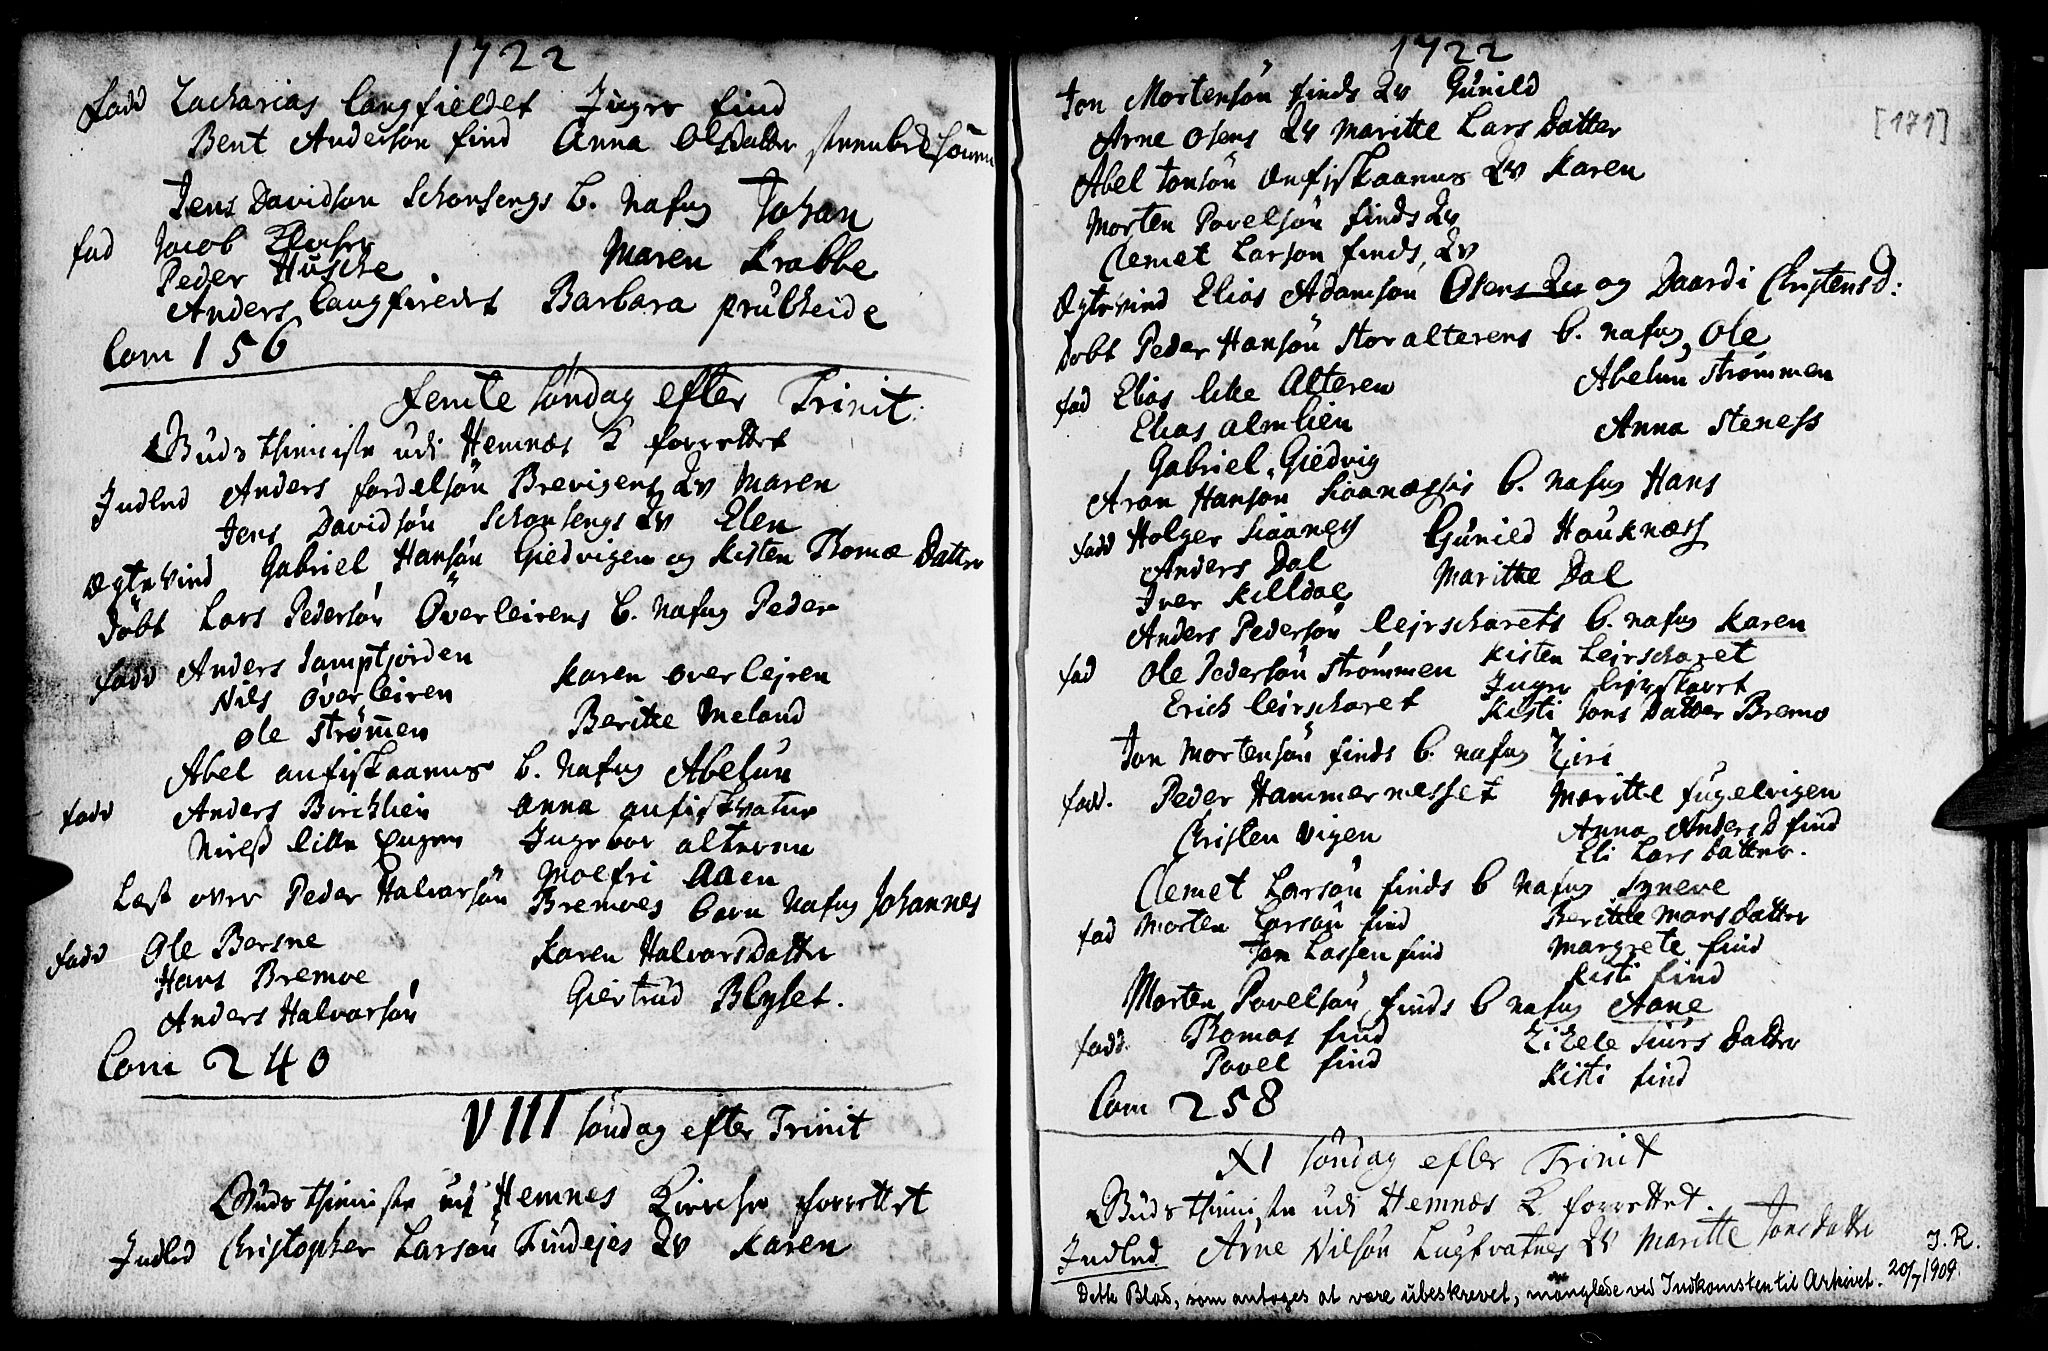 1722
fadd Zacharias Langfieldet Inger find
Bent Andersön find Anna Olsdatter
Jens Davidsön Schonsengs b. nafng Johan
fad Jacob
Peder Húsche Maren Krabbe
Anders Langfieldet Barbara prutheide
Com 156
Femte Söndag efter Trinit:
Guds thienniste udi Hemnæs K forrettet
Indled Anders fordelsön Brevigens Qv Maren
Jens Davidsön Schonsengs Qv Elen
Ægtevind Gabriel Hansön Giedvigen og Kisten Thomæ Datter
Döbt Lars Pedersön Överleirens b. nafng Peder
fadd Anders Jamptjorden Karen overlejren
Nils overleiren Beritte Meland
Ole Strömen
Abel anfiskaanus b. nafng Abelun
fadd Anders Birchlien Anna anfiskvatne
Nirels lille Ingebor alteren
Molfri Aaen
Læst over Peder Halvorsön Bremoes barn nafng Johannes
fadd Ole Bersne Karen Halvorsdatter
Hans Bremoe Giertrud Blyset.
Anders Halvorsön
Com 240
VIII söndag efter Trinit
Guds thienniste udi Hemnes Kirche forrettet
Indled Christopher Larsön Findejes Qv Karen
1722
[171]
Jon Mortensön finds Qv Gunild
Arne Osens Qv Maritte Lars Datter
Abel Jonsön Qv Karen
Morten Povelsön finds Qv
Clemet Larsön finds Qv
Ægtevind Elias Adamsön Osens Qv og Daardi Christensd:
Döbt Peder Hansön Storalterens b. nafng Ole
fad Elias lille Alteren Abelun Strömmen
Elias almlien Anna Steness
Gabriel Giedvig
Aron Hansön b. nafng Hans
fadd Holger Siaanes Gunied Houknæss
Anders Dal Maritte Dal
Iver Killdal
Anders Pedersön Lejrscharets b. nafng Karen
fad Ole Pedersön Strömmen Kisten Leirscharet
Erich leirscharet Inger leirskaret
Kisti Jons Datter Bremo
Jon Mortensön finds b. nafng Ziri
fadd. Peder Hammernesset Maritte fugelvigen
Christen Vigen Anna Anders D find
Eli Lars datter.
Clemet Larsön finds b nafng Syneve
fad Morten Larsön find Beritte Mons datter
Jon Lassen find Margrete find
Kisti find
Morten Povelsön finds b nafng Aane
fadd. Thomas find Zizele Siurs datter
Povel find Kisti find
Com 258
XI söndag efter Trinit
Guds thienniste udi Hemnæs K forrettet.
Indled Arne Nilsön Lugtvatnes Qv Maritte Jonsdatter
Dette Blad, som antages at være ubeskrevet, manglede ved Indkomsten til Arkivet. 20/7 1909. J. R.